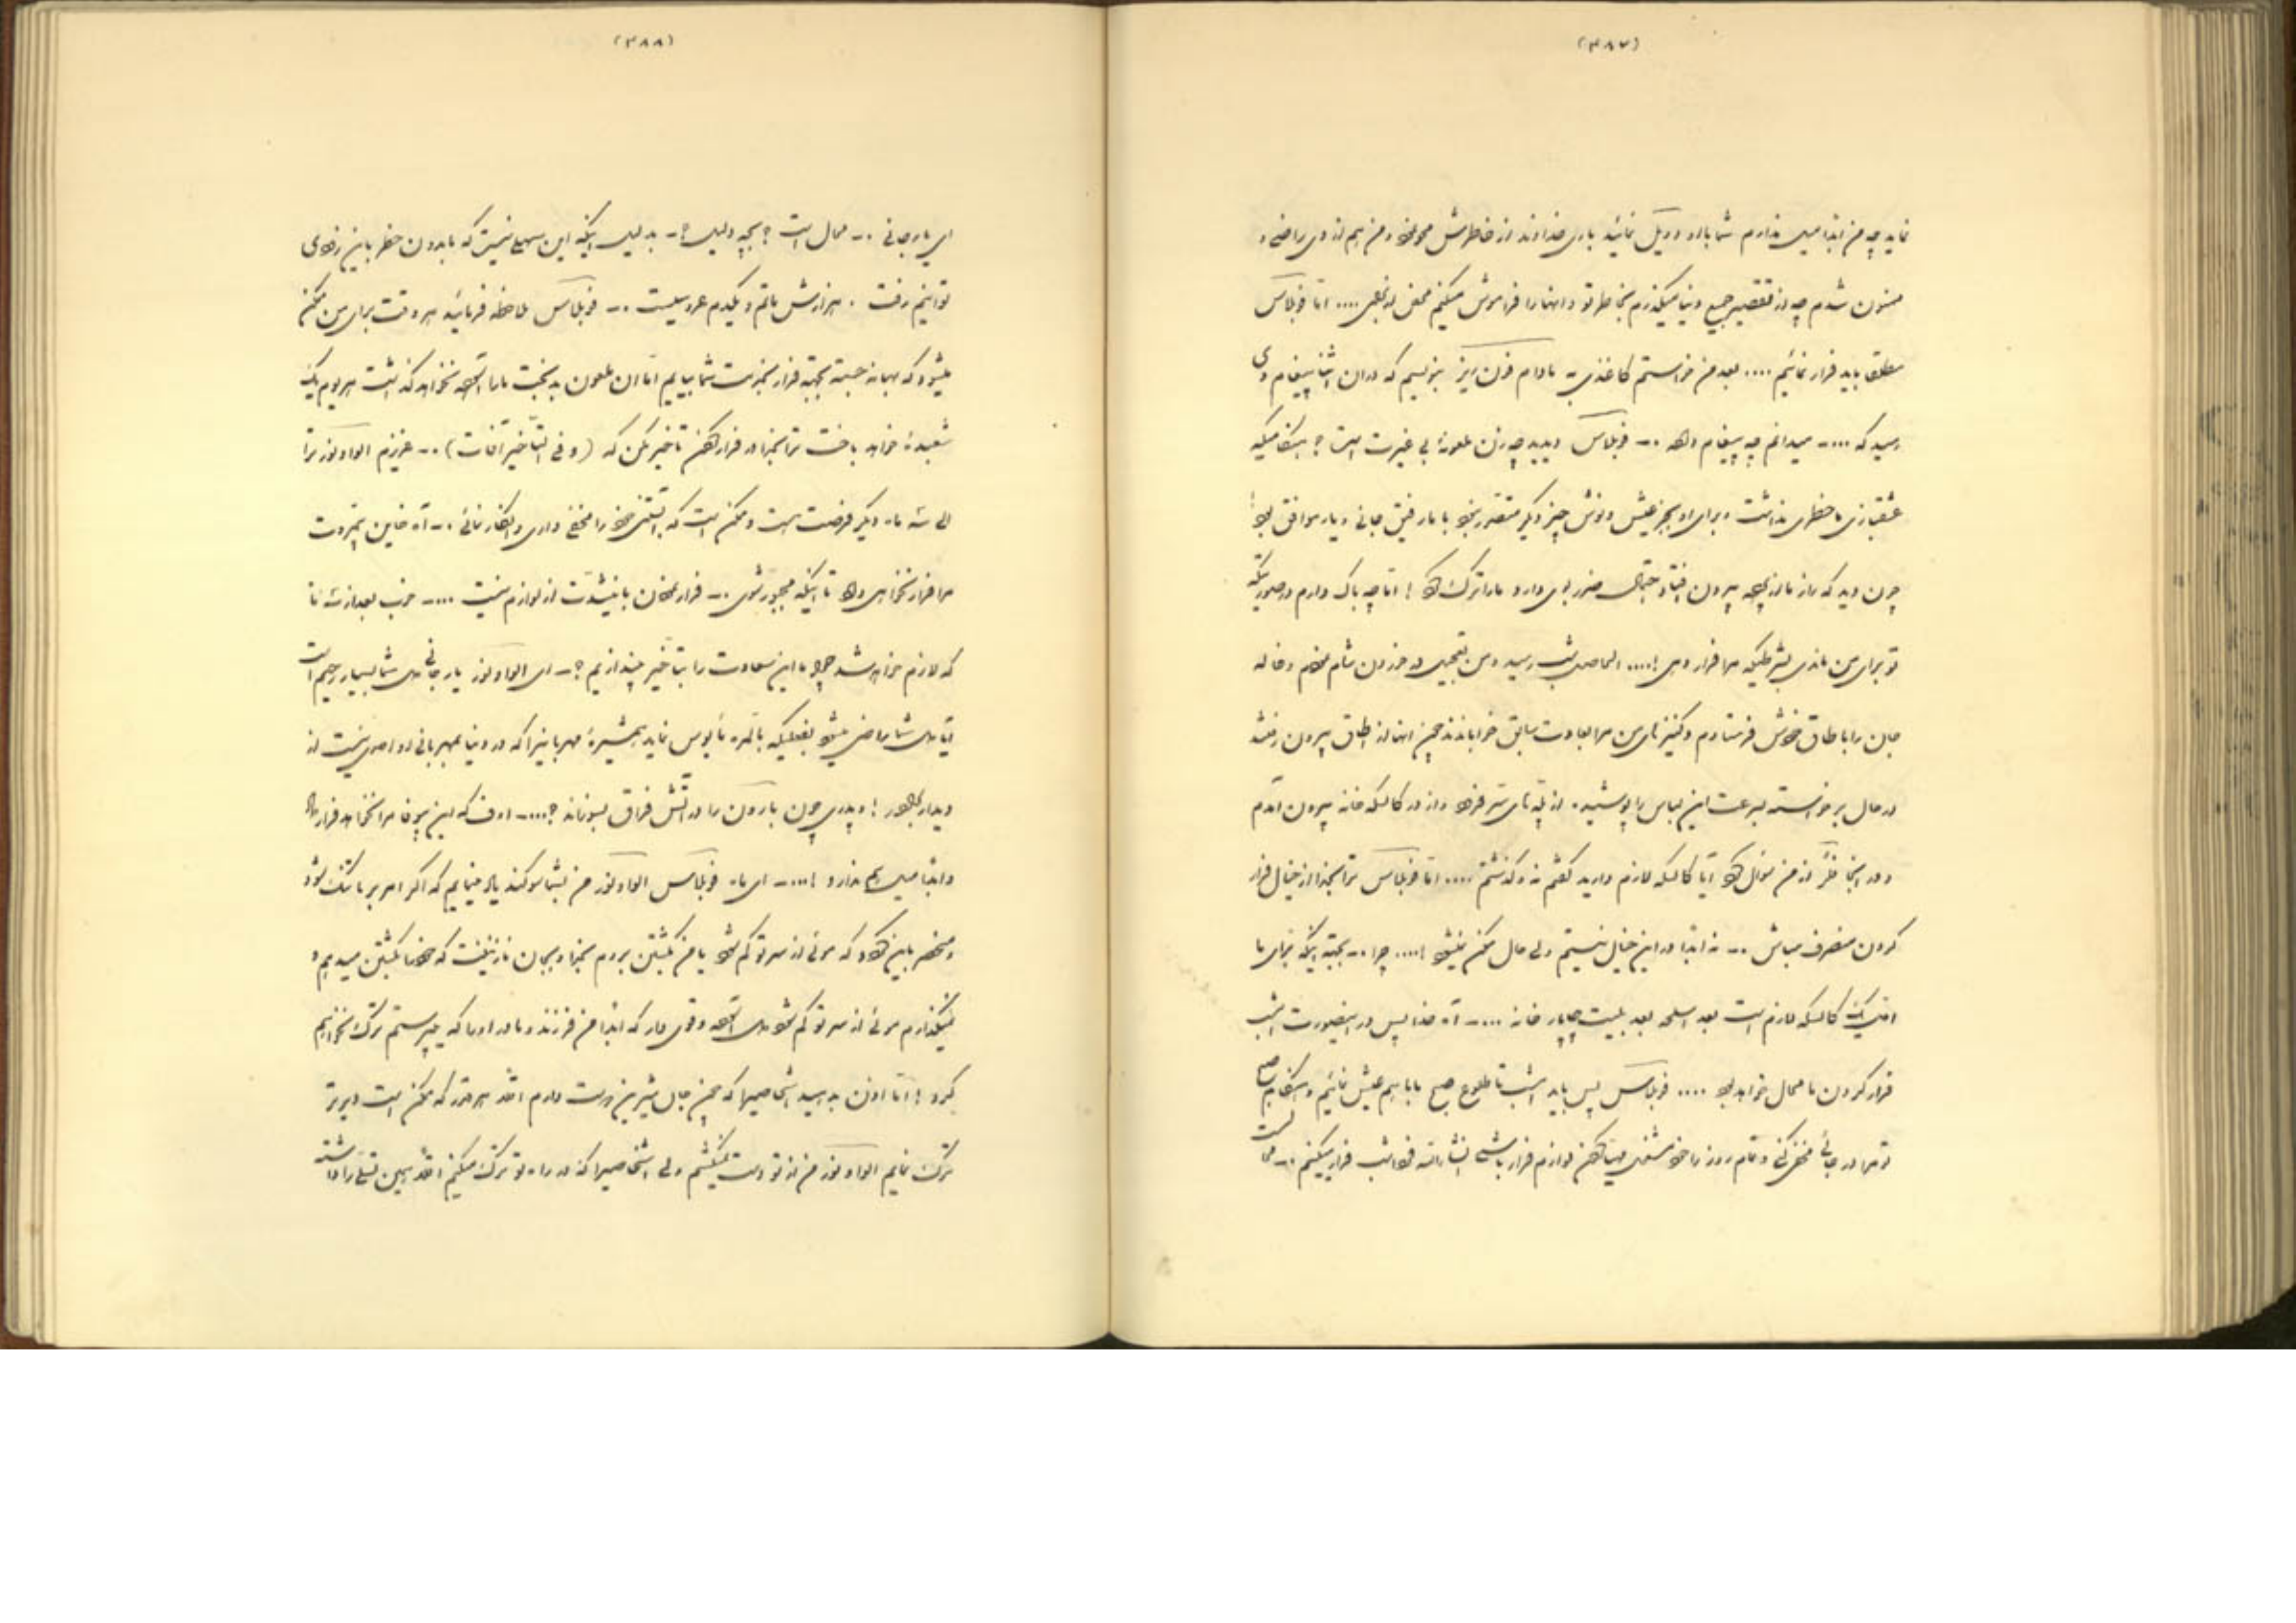 (۳۸۷)
نماید چه من ابدا میل ندارم شما با او دویل نمائید باری خداوند از خاطرش محو نمود و من هم از وی راضی و
ممنون شدم چه از تقصیر جمیع دنیا میگذرم بخاطر تو و انها را فراموش میکنم محض تو .... اما فوبلاس
مطلق باید فرار نمائیم .... بعد من خواستم کاغذی به مادام فون ریز بنویسم که در ان اثنا پیغام وی
رسید که .... میدانم چه پیغام داده .- فوبلاس دیدید چه زن ملعونهٔ بی غیرت است ؟ هنگامیکه
عشقبازی ما خطری نداشت و برای او بجز عیش و نوش چیز دیگر متصور نبود با ما رفیق جانی و یار موافق بود !
چون دید که راز ما از پرده بیرون افتاد و احتمال ضرر بوی دارد ما را ترک کرد ! اما چه باک دارم در صورتیکه
تو برای من ماندی بشرطیکه مرا فرار دهی !.... الحاصل شب رسید و من بتعجیل در خوردن شام نمودم و خاله
جان را باطاق خودش فرستادم و کنیزهای من مرا بعادت سابق خوابانند چون انها از اطاق بیرون رفتند
در حال برخواسته بسرعت این لباس را پوشیده از پله‌های سر فرود و از در کالسکه خانه بیرون آمدم
و در اینجا از من سؤال کرد آیا کالسکه لازم دارید گفتم نه و گذشتم .... اما فوبلاس ترا بخدا از خیال فرار
کردن منصرف مباش .- نه ابدا در این خیال نیستم ولی حال ممکن نمیشود !.... چرا .- بجهة اینکه برای ما
اولا یک کالسکه لازم است بعد اسلحه بعد بلیت چاپار خانه .... آه خدا پس در اینصورت امشب
فرار کردن ما محال خواهد بود .... فوبلاس پس باید امشب تا طلوع صبح با هم عیش نمائیم و هنگام صبح
تو مرا در جائی مخفی کنی و تمام روز را خود مشغول مهیا کردن لوازم فرار باشی انشاءالله فردا شب فرار میکنیم .- محالست
(۳۸۸)
ای یار جانی .- محال است ؟ بچه دلیل ؟- بدلیل اینکه این سهل نیست که ما بدون خطر باین زودی
توانیم رفت . هزارش ماتم و یکدم عروسیست .- فوبلاس ملاحظه فرمائید هر وقت برای من ممکن
میشود که بهانه جسته بجهة فرار بخدمت شما بیایم اما ان ملعون بدبخت ما را آسوده نخواهد گذاشت هر یوم یک
شعبدهٔ خواهد باخت ترا بخدا در فرار کردن تأخیر مکن که (و فی التأخیر آفات) .- عزیزم الوادونور ترا
الی سه ماه دیگر فرصت هست و ممکن است که آبستنی خود را مخفی داری و انکار نمائی .- آه خاین بیمروت
مرا فرار نخواهی داد تا اینکه مجبور شوی .- فرارمان باینشدت از لوازم نیست .... خوب بعد از سه ماه
که لازم خواهد شد چرا ما این سعادت را بتأخیر بیندازیم ؟- ای الوادونور یار جانی دل شما بسیار رحیم است
آیا دل شما راضی میشود بفعلیکه بالمره مأیوس نماید همشیرهٔ مهربانیرا که در دنیا بمهربانی او احدی نیست از
دیدار برادر ! و پدری چون بارون را در آتش فراق بسوزاند ؟.... اوف که این بیوفا مرا نخواهد فرار داد
و ابدا میل هم ندارد !.... ای ماه فوبلاس الوادونور من بشما سوگند یاد مینمایم که اگر امر بر ما تنگ شود
و منحصر باین گردد که موئی از سر تو کم شود یا من بکشتن بروم بخدا و بجان نازنینت که خود را بکشتن میدهم و
نمیگذارم موئی از سر تو کم شود دل آسوده و قوی دار که ابدا من فرزند و مادر او را که میپرستم ترک نخواهم
کرد ! اما اذن بدهید اشخاصیرا که چون جان شیرین دوست دارم اقلا هر قدر که ممکن است دیرتر
ترک نمایم الوادونور من از تو دست نمیکشم ولی اشخاصیرا که در راه تو ترک میکنم اقلا همین تسلی را داشته